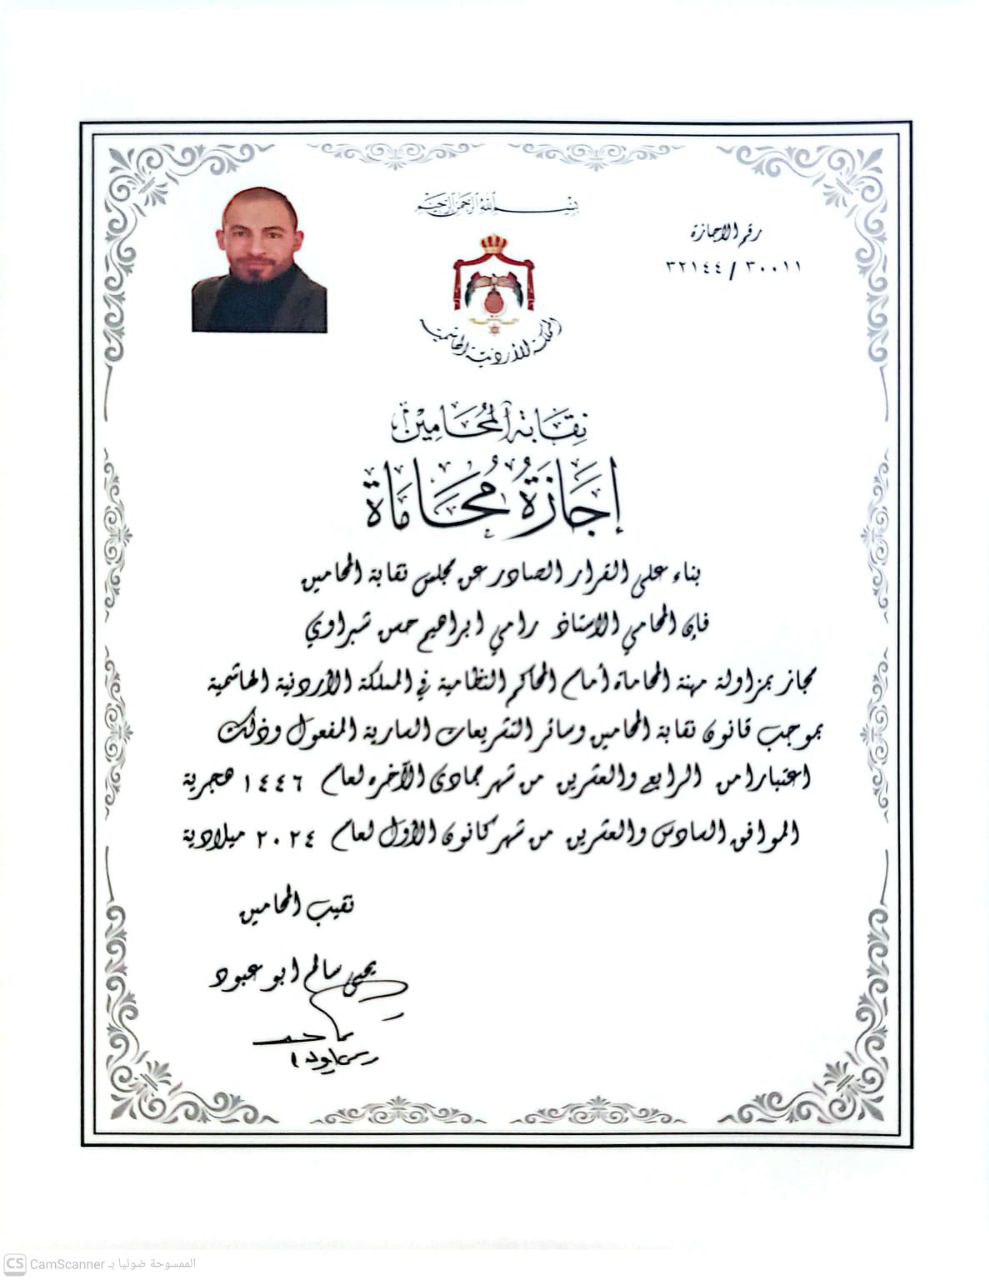 بسم الله الرحمن الرحيم
رقم الاجازة
٣٢١٤٤ / ٣٠٠١١
المملكة الأردنية الهاشمية
نِقَابَةُ المُحَامِيْنَ
إِجَازَةُ مُحَامَاة
بناء على القرار الصادر عن مجلس نقابة المحامين
فإن المحامي الاستاذ رامي ابراهيم حسن شبراوي
مجاز بمزاولة مهنة المحاماة أمام المحاكم النظامية في المملكة الأردنية الهاشمية
بموجب قانون نقابة المحامين وسائر التشريعات السارية المفعول وذلك
اعتبارا من الرابع والعشرين من شهر جمادى الآخره لعام ١٤٤٦ هجرية
الموافق السادس والعشرين من شهر كانون الأول لعام ٢٠٢٤ ميلادية
نقيب المحامين
يحيى سالم ابو عبود
CS CamScanner الممسوحة ضوئيا بـ